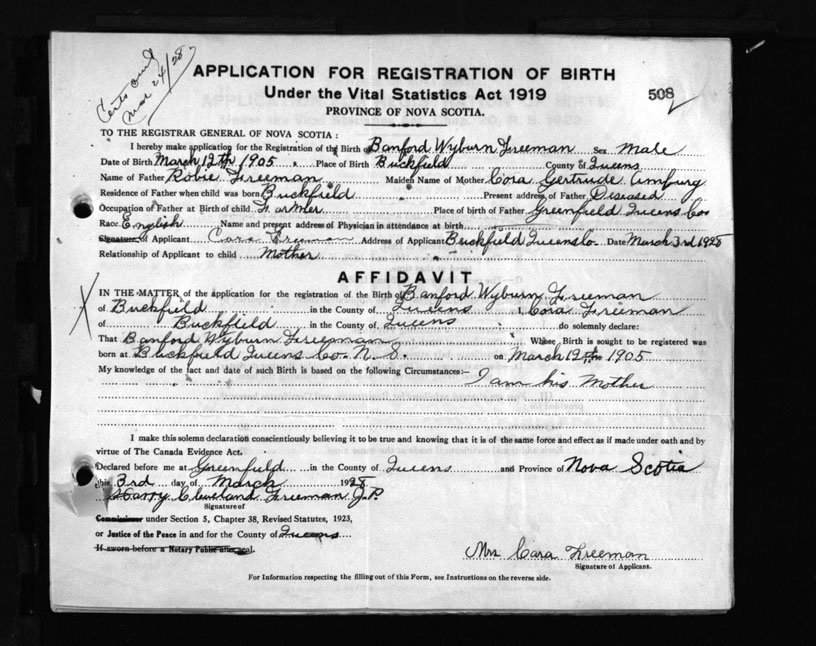 Certs only
Mar 24/28
APPLICATION FOR REGISTRATION OF BIRTH
Under the Vital Statistics Act 1919
508
PROVINCE OF NOVA SCOTIA.
TO THE REGISTRAR GENERAL OF NOVA SCOTIA :
I hereby make application for the Registration of the Birth of Banford Wyburn Freeman Sex Male
Date of Birth March 12th 1905 Place of Birth Buckfield County of Queens
Name of Father Robie Freeman Maiden Name of Mother Cora Gertrude
Residence of Father when child was born Buckfield Present address of Father Deseased
Occupation of Father at Birth of child Farmer Place of birth of Father Greenfield Queens Co
Race English Name and present address of Physician in attendance at birth
Signature of Applicant Cara Freeman Address of Applicant Buckfield Queens Co. Date March 3rd 1928
Relationship of Applicant to child Mother
AFFIDAVIT
IN THE MATTER of the application for the registration of the Birth of Banford Wyburn Freeman
of Buckfield in the County of Queens I, Cora Freeman
of Buckfield in the County of Queens do solemnly declare:
That Banford Wyburn Freeman Whose Birth is sought to be registered was
born at Buckfield Queens Co. N. S. on March 12th 1905
My knowledge of the fact and date of such Birth is based on the following Circumstances:—
I am his Mother
I make this solemn declaration conscientiously believing it to be true and knowing that it is of the same force and effect as if made under oath and by
virtue of The Canada Evidence Act.
Declared before me at Greenfield in the County of Queens and Province of Nova Scotia
this 3rd day of March 1928
Harry Cleveland Freeman J.P.
Signature of
Commissioner under Section 5, Chapter 38, Revised Statutes, 1923,
or Justice of the Peace in and for the County of Queens
If sworn before a Notary Public affix seal.
Mrs Cara Freeman
Signature of Applicant.
For Information respecting the filling out of this Form, see Instructions on the reverse side.